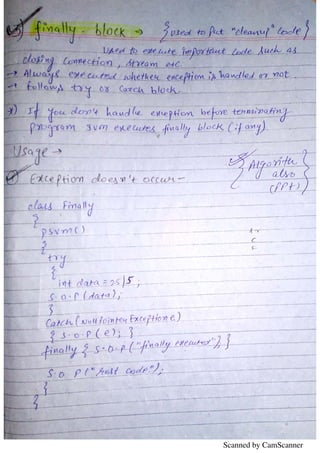 finally block → { used to put "cleanup" code }
Used to execute important code such as
closing connection, stream etc.
→ Always executed whether exception is handled or not
→ follows try or catch block.
*) If you don't handle exception before terminating
program JVM executes finally block (if any).
Usage →
Exception doesn't occur –
{ Algorithm
also
(PPt) }
class Finally
{
psvm()
{
try
{
int data = 25/5;
S.O.P (data);
}
catch (NullPointerException e)
{ S.O.P (e); }
finally { S.O.P ("finally executes"); }
S.O.P ("rest code");
}
}
Scanned by CamScanner